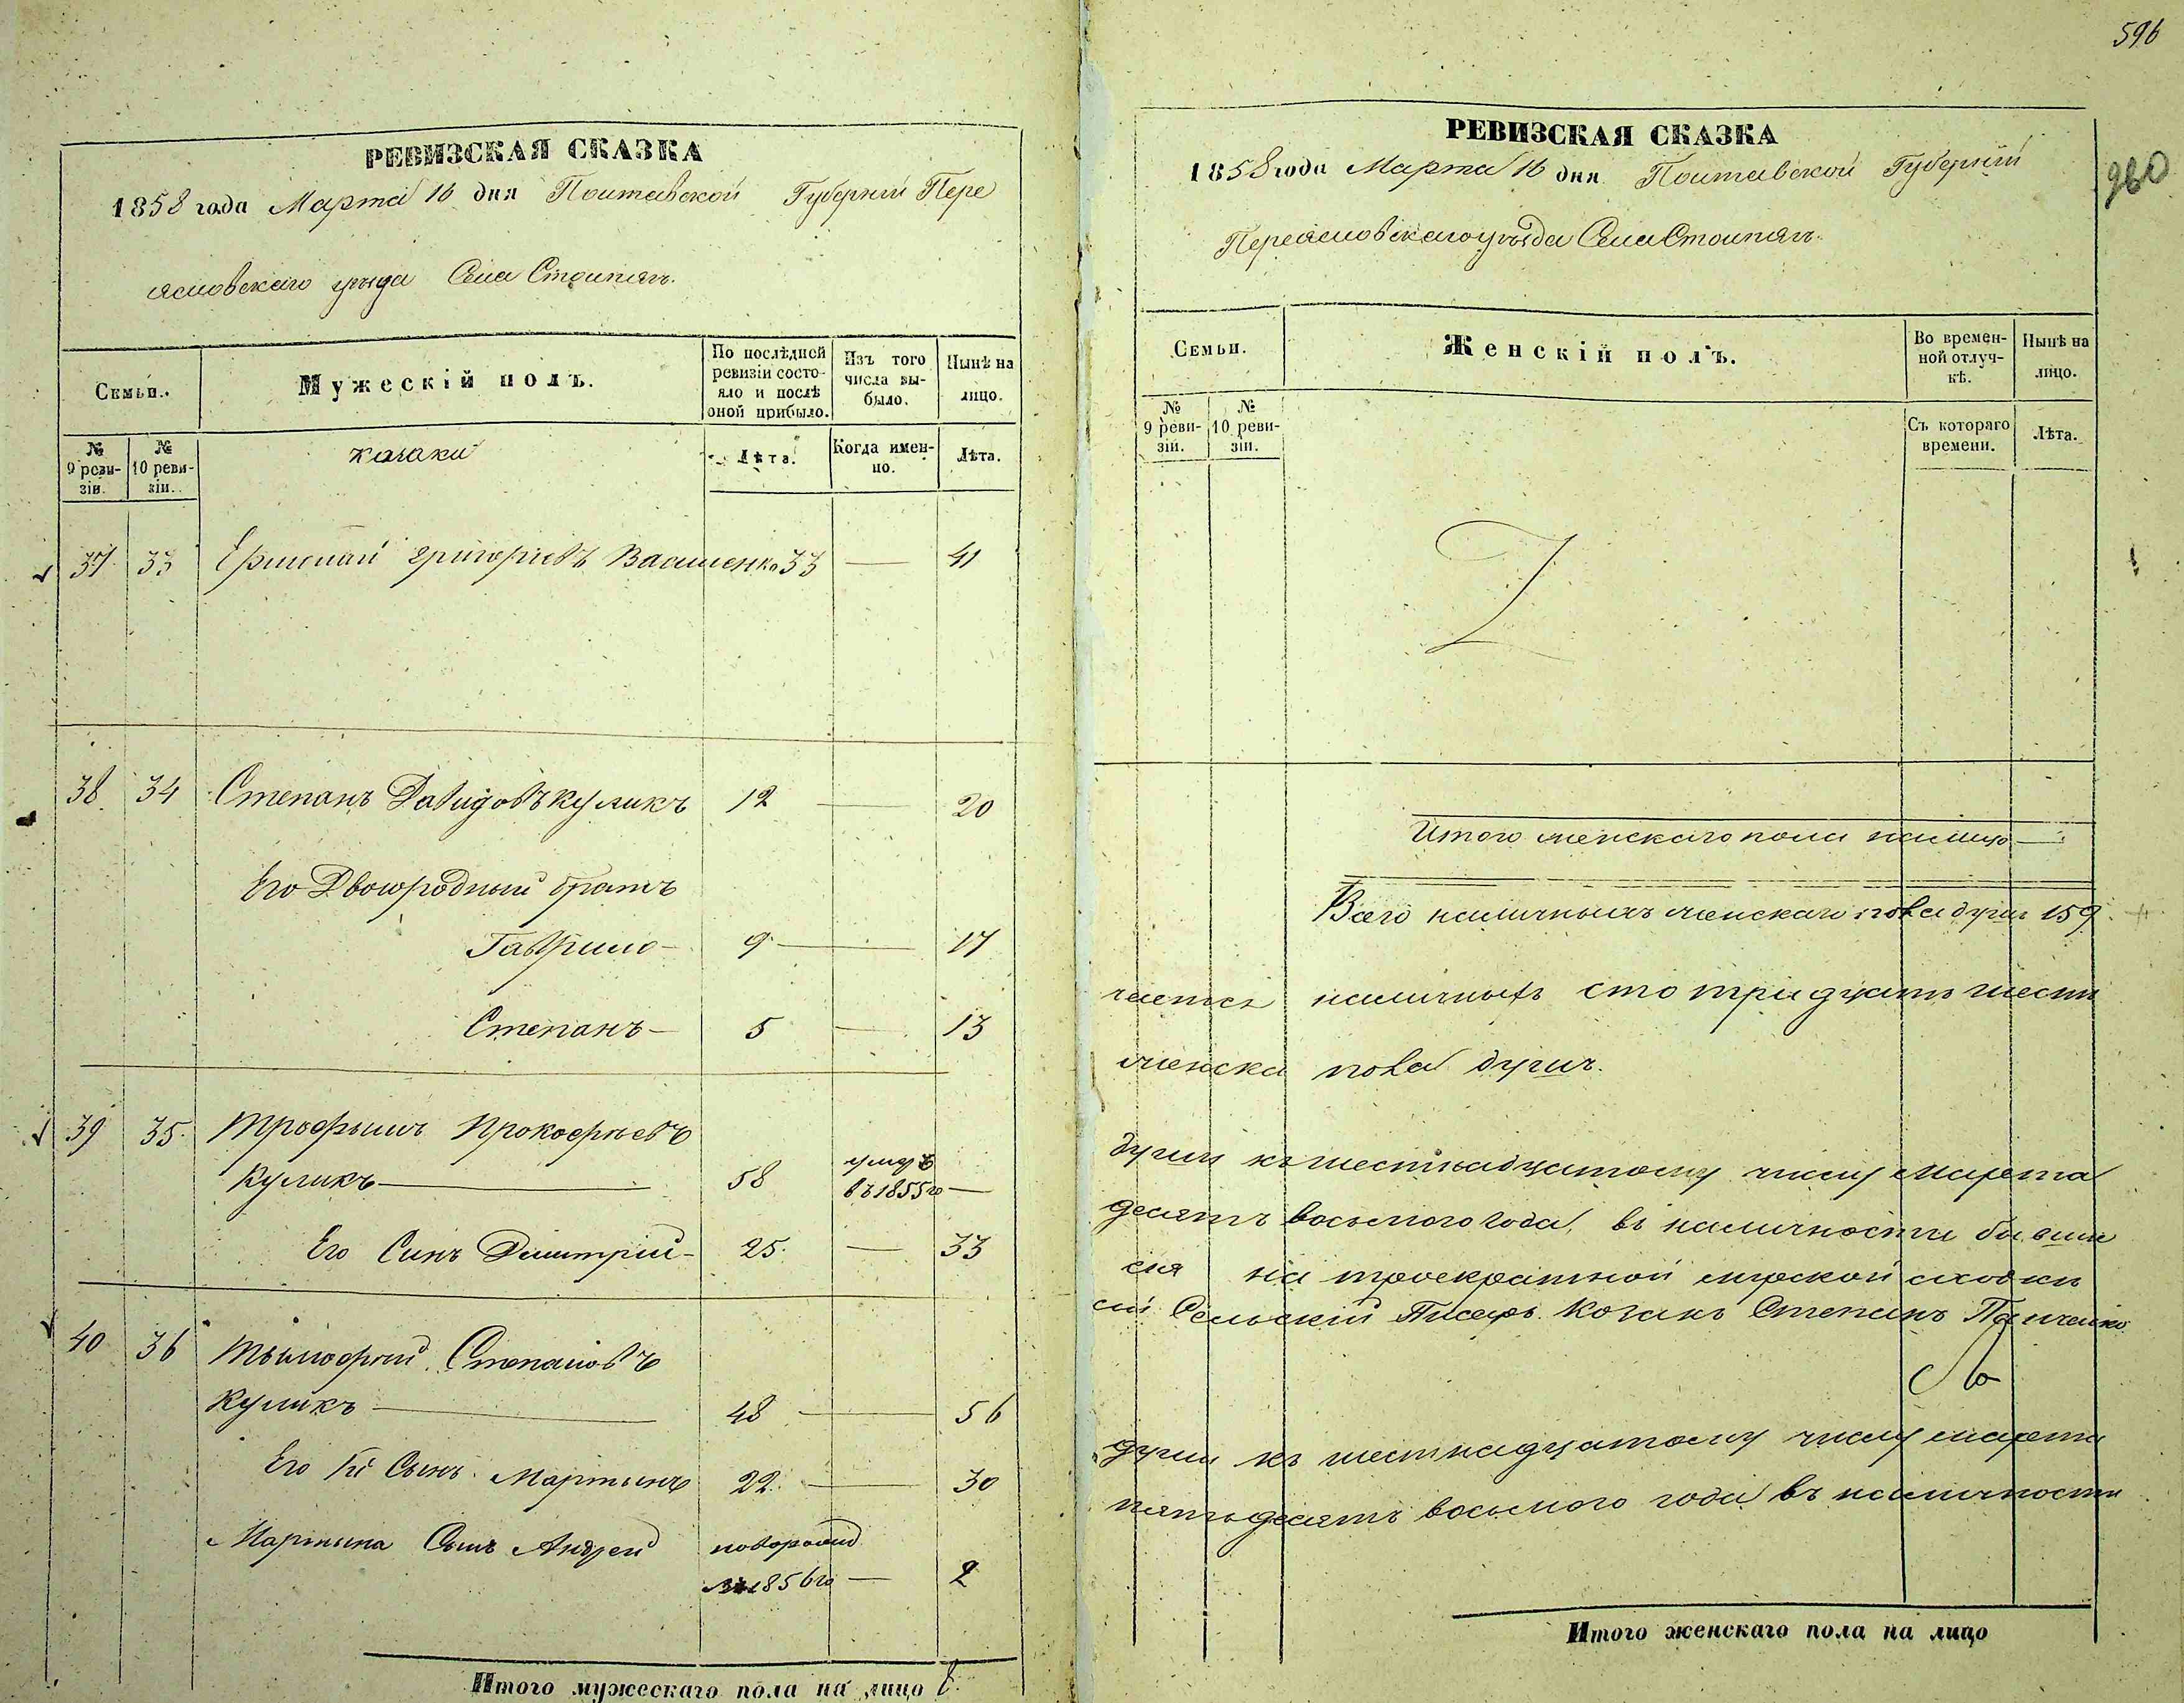 596
РЕВИЗСКАЯ СКАЗКА
1858 года Марта 16 дня Полтавской Губерніи Пере
яславскаго уезда Села Столпягъ.
Семьи.
Мужескій полъ.
По послѣдней ревизіи состояло и послѣ оной прибыло.
Изъ того числа выбыло.
Нынѣ на лицо.
№ 9 ревизіи.
№ 10 ревизіи.
казаки
Лѣта.
Когда именно.
Лѣта.
37 33 Григорьевъ 33 — 41
38 34 Степанъ Давидовъ Куликъ 12 — 20
Его Двоюродный братъ
Гаврило — 9 — 17
Степанъ — 5 — 13
39 35 Трофымъ Прокофьевъ
Куликъ — 58 умеръ въ 1855 го —
Его Синъ Димитрій — 25 — 33
40 36 Тымофій Степановъ
Куликъ — 48 — 56
Его 1й Сынъ Мартынъ 22 — 30
Мартына Сынъ Андрей новорожд
1856 го — 2
Итого мужескаго пола на лицо 8
РЕВИЗСКАЯ СКАЗКА
960
1858 года Марта 16 дня Полтавской Губерніи
Переяславскаго уѣзда Села Столпягъ.
Семьи.
Женскій полъ.
Во временной отлучкѣ.
Нынѣ на лицо.
№ 9 ревизіи.
№ 10 ревизіи.
Съ котораго времени.
Лѣта.
Итого женскаго пола налицо —
Всего наличныхъ женскаго пола душъ 159
наличныхъ сто тридцать шесть
женска пола душъ.
души къ шестнадцатому числу марта
десятъ восьмого года, въ наличности бывши
сія на троекратной мирской сходки
Сельскій Писарь Козакъ Степанъ
души къ шестнадцатому числу марта
пятьдесятъ восьмого года въ наличности
Итого женскаго пола на лицо